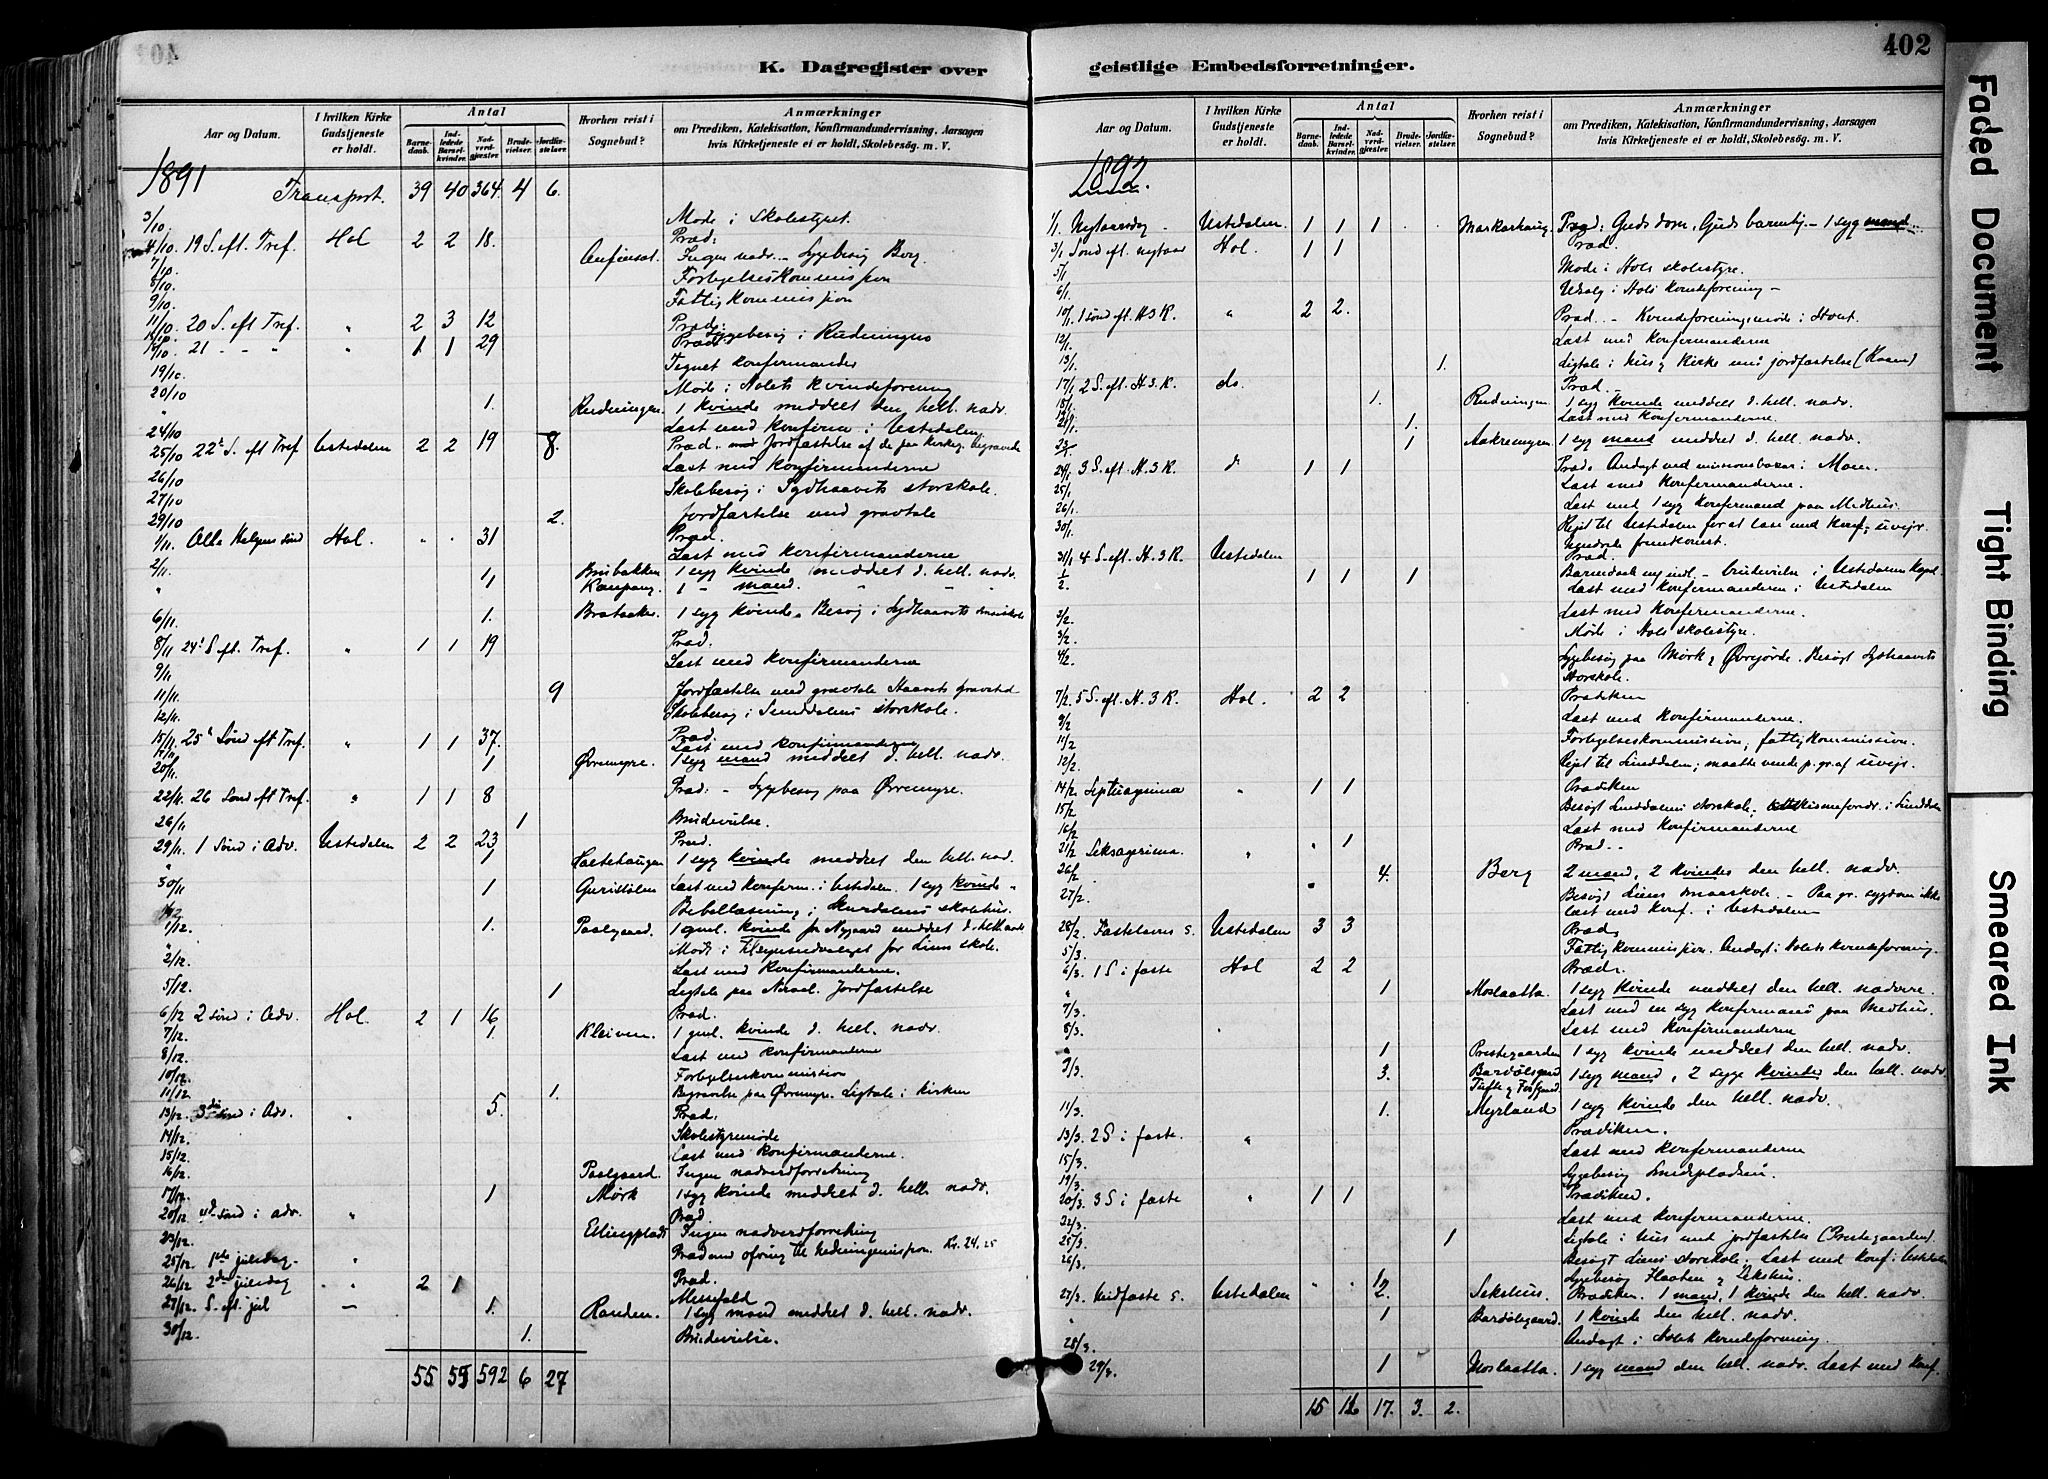 402
K. Dagregister over
Aar og Datum.
I hvilken Kirke Gudstjeneste er holdt.
Antal
Barnedaab.
Indledede Barselkvinder.
Nadverdgjæster
Brudevielser.
Jordfæstelser.
Hvorhen reist i Sognebud?
Anmærkninger
om Prædiken, Katekisation, Konfirmandundervisning, Aarsagen
hvis Kirketjeneste ei er holdt, Skolebesøg. m. V.
1891
Transport. 39 40 364 4 6.
3/10. Møde i Skolestyret.
4/10. 19 S. eft. Tref. Hol 2 2 18. Præd.
7/10. Ingen nadv. - Sygebesøg Berg
8/10. Forligelseskommission
9/10. Fattigkommission
11/10. 20 S. eft Tref. " 2 3 12 Præd.
Sygebesøg i Rudningen
21 - - " " 1 1 29 Præd.
19/10. Tegnet konfirmander
20/10 Møde i Hols kvindeforening
" 1. Rudningen. 1 kvinde meddelt den hell. nadv.
24/10 Læst med konfirm. i Ustedalen
25/10 22 S. eft Tref Ustedalen 2 2 19 8. Præd. Jordfæstelse af de paa kirkeg. begravede
26/10 Læst med konfirmanderne
27/10 Skolebesøg i Sydhaavets storskole.
29/10 2. Jordfæstelse med gravtale
1/11. Alle Helgens sønd Hol. " " 31 Præd.
Læst med konfirmanderne
2/11. 1 Brubakken 1 syg kvinde meddelt d. hell. nadv.
" 1 1 - mand. " "
6/11. 1. 1 syg kvinde. Besøg i Sydhaavets smaaskole
8/11 24 S eft. Tref. " 1 1 19 Præd.
9/11 Læst med konfirmanderne
11/11. 9 Jordfæstelse med gravtale
12/11. Skolebesøg i Sunddalens storskole.
15/11. 25 Sønd eft Tref. " 1 1 37. Præd.
Læst med konfirmanderne
20/11. 1 Øvremyre. 1 syg mand meddelt d. hell. nadv.
22/11. 26 Sønd eft Tref. " 1 1 8 Præd. - Sygebesøg paa Øvremyre.
26/11 1 Brudevielse.
29/11. 1 Sønd i Adv. Ustedalen 2 2 23 Præd.
" 1 1 syg kvinde meddelt den hell. nad.
30/11 1 Læst med konfirm. i Ustedalen. 1 syg kvinde "
Bibellæsning i skolehus.
1/12. 1. Paalgaard. 1 gml. kvinde fr Nygaard meddelt d. hell. nadv
" Møde i Tilsynsudvalget for Liens skole.
2/12 Læst med konfirmanderne.
5/12. 1 Ligtale paa Jordfæstelse
6/12 2 sønd i Adv. Hol. 2 1 16 Præd.
7/12. 1. Kleiven. 1 gml. kvinde d. hell. nadv.
8/12. Læst med konfirmanderne
10/12. Forligelseskommission
11/12 1. Begravelse paa Øvremyre. Ligtale i kirken
13/12. 3die sønd i Adv. " 5. Præd.
14/12. Skolestyremøde
15/12. Læst med konfirmanderne.
16/12 Paalgaard. Ingen nadverdforretning
17/12. 1 Mørk 1 syg kvinde meddelt d. hell. nadv.
20/12 4de sønd i adv. " Præd
23/12. Ingen nadverdforretning
25/12. 1ste juledag. " Præd med ofring til hedningemission. Kr. 24,25
26/12 2den juledag " 2 1 Præd.
27/12. S. eft. jul — Messefald
1. Randen. 1 syg mand meddelt d. hell. nadv.
30/12. 1. Brudevielse.
55 55 592 6 27
402
geistlige Embedsforretninger.
Aar og Datum.
I hvilken Kirke Gudstjeneste er holdt.
Antal
Barnedaab.
Indledede Barselkvinder.
Nadverdgjæster.
Brudevielser.
Jordfæstelser.
Hvorhen reist i Sognebud?
Anmærkninger
om Prædiken, Katekisation, Konfirmandundervisning, Aarsagen
hvis Kirketjeneste ei er holdt, Skolebesøg. m. V.
1892
1/1. Nytaarsdag - Ustedalen 1 1 1 Markarhaug. Præd: Guds dom, Guds barmhj. - 1 syg mand
3/1 Sønd eft. nytaar Hol. 1 1 Præd
5/1 Møde i Hols skolestyre.
6/1. Udvalg i Hols kvindeforening -
10/1. 1 sønd eft. H. 3 K. " 2 2. Præd. - Kvindeforeningsmøde i
12/1. Læst med konfirmanderne
13/1. 1. Ligtale i hus & kirke med jordfæstelse
17/1 2 S. eft. H. 3. K. do. Præd.
18/1. 1. Rudningen 1 syg kvinde meddelt d. hell. nadv.
1. Læst med konfirmanderne.
1 Aakremyren 1 syg mand meddelt d. hell. nadv.
24/1 3 S. eft. H. 3 K. d 1 1 Præd. Andagt ved missionsbazar i Moen.
25/1. Læst med konfirmanderne.
26/1. Læst med 1 syg konfirmand paa Medhus.
30/1. Rejst til Ustedalen for at læse med konf., uvejr hindrede fremkomst.
31/1 4 S. eft. H. 3 K. Ustedalen Præd.
1/2. 1 1 1 Barnedaab og indl. - brudevielse i Ustedalen Kapel.
Læst med konfirmanderne i Ustedalen
3/2. Læst med konfirmanderne.
3/2. Møde i Hols skolestyre.
4/2. Sygebesøg paa Mørk & Øvrejorde. Besøgt Sydhaavets Storskole.
7/2. 5 S. eft. H. 3 K. Hol. 2 2 Prædiken
9/2 Læst med konfirmanderne.
11/2 Forligelseskommission, fattigkommission.
12/2. Rejst til Sunddalen; maatte vende p. gr. af uvejr.
14/2. Septuagesima " 1 1 Prædiken
15/2 Besøgt Sunddalens storskole; i Sunddalen
16/2 Læst med konfirmanderne
21/2 Seksagesima. " " 1 Præd. -
26/2. 4. Berg 2 mænd, 2 kvinder den hell. nadv.
27/2. Besøgt Liens smaaskole. - Paa gr. sygdom ikke læst med konf. i Ustedalen
28/2. Fastelavns s. Ustedalen 3 3 Præd.
5/3. Fattigkommission. Andagt i Hols kvindeforening.
6/3. 1 S i faste Hol 2 2 Præd.
" 1 Moslaatta. 1 syg kvinde meddelt den hell. nadvere.
7/3. Læst med en syg konfirmand paa Medhus.
8/3. Læst med konfirmanderne
" 1 Prestegaarden 1 syg kvinde meddelt den hell. nadv.
9/3. 3. 1 syg mand, 2 syge kvinder den hell. nadv
11/3. 1. Myrland 1 syg kvinde den hell. nadv.
13/3. 2 S i faste. " Prædiken.
15/3. Læst med konfirmanderne
19/3. Sygebesøg Smedpladsen.
20/3. 3 S i faste " 1 1 Prædiken.
22/3. Læst med konfirmanderne.
25/3. 1 Ligtale i hus med jordfæstelse (Prestegaarden)
26/3. Besøgt Liens storskole. - Læst med konf. i Ustedalen
Sygebesøg Haaten & Sekshus.
27/3 Midfaste s. Ustedalen " " 2. Sekshus. Prædiken. 1 mand, 1 kvinde den hell. nadv.
" 1 Bardølsgaard. 1 kvinde den hell. nadv.
28/3. Andagt i Hols kvindeforening.
29/3. 1 Moslaatta 1 syg mand den hell. nadv. Læst med konf.
15 16 17. 3. 2.
Faded Document
Tight Binding
Smeared Ink